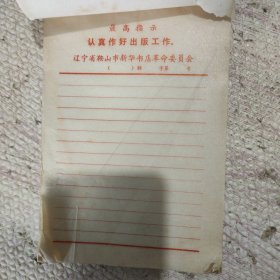 最高指示
认真作好出版工作。
辽宁省鞍山市新华书店革命委员会
(　　)　字第　号